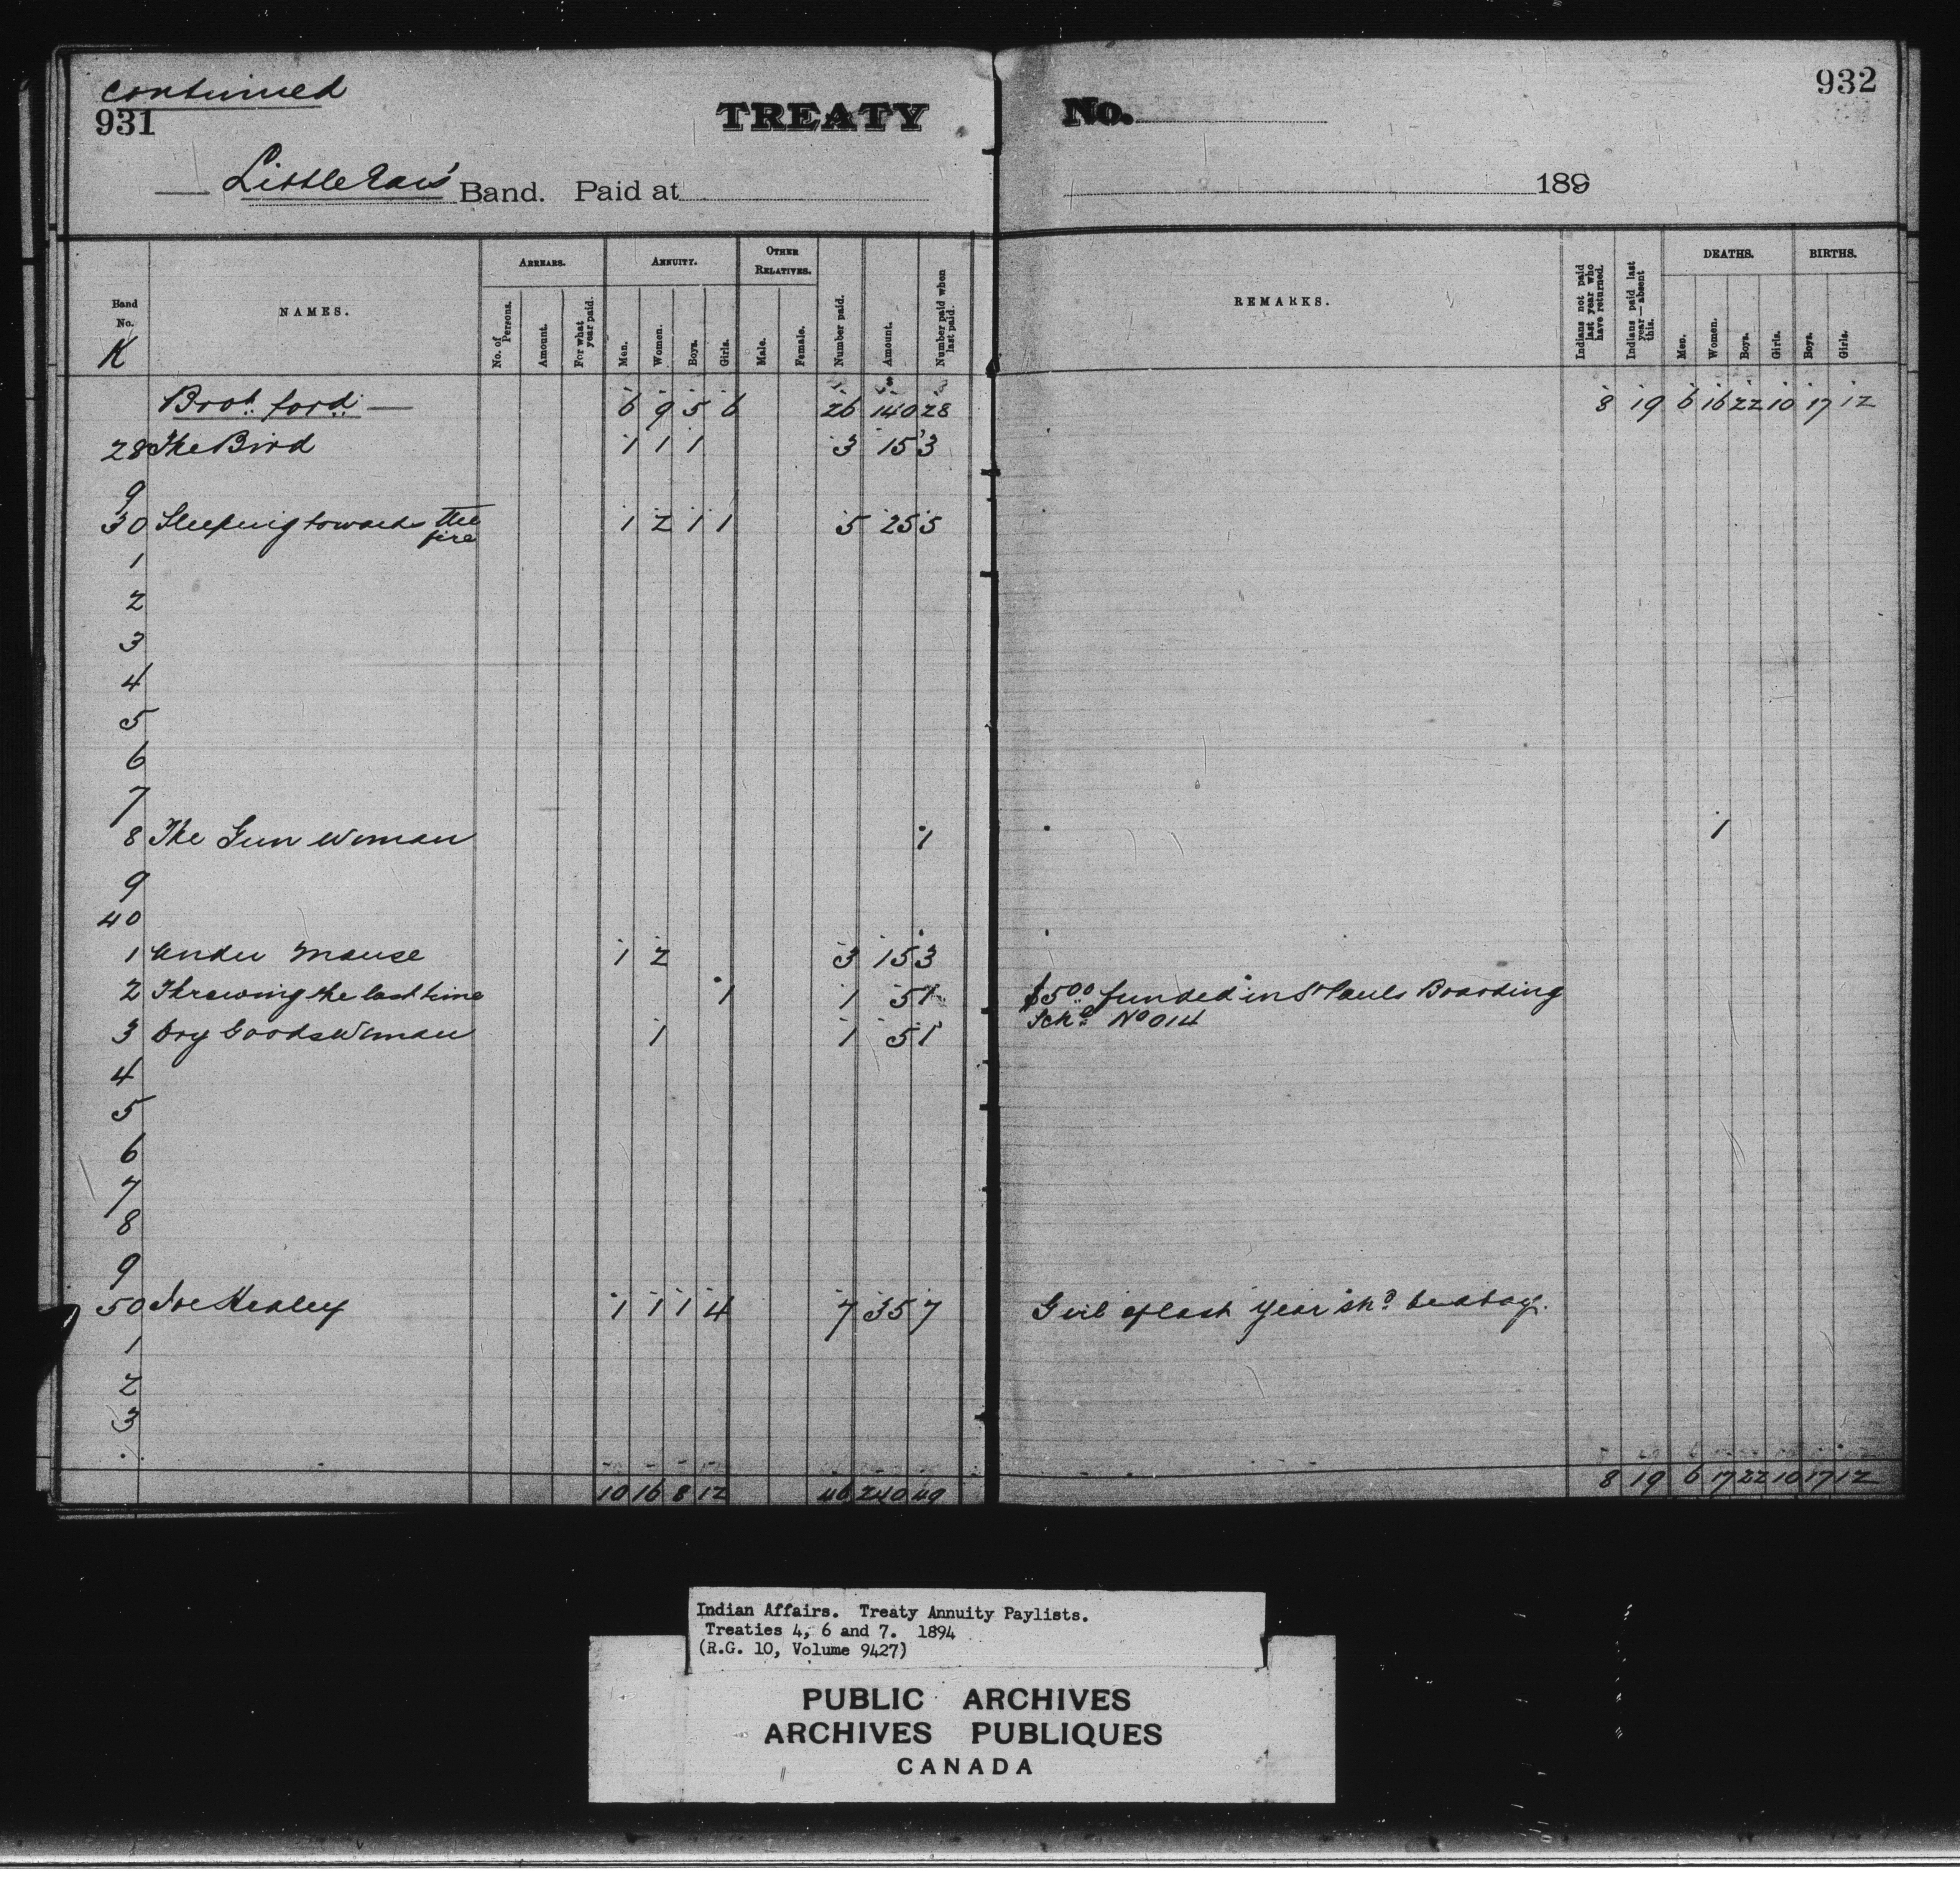 continued
931 TREATY No. 932
Little Ears' Band. Paid at 189
Band No. NAMES. ARREARS. ANNUITY. OTHER RELATIVES. Number paid. Amount. Number paid when last paid. REMARKS. Indians not paid last year who have returned. Indians paid last year—absent this. DEATHS. BIRTHS.
No. of Persons. Amount. For what year paid. Men. Women. Boys. Girls. Male. Female. Men. Women. Boys. Girls. Boys. Girls.
K
Brot. ford. 6 9 5 6 26 140 28 8 19 6 16 22 10 17 12
28 The Bird 1 1 1 3 15 3
9
30 Sleeping towards the fire 1 2 1 1 5 25 5
1
2
3
4
5
6
7
8 The Gun Woman 1 1
9
40
1 Under Mouse 1 2 3 15 3
2 Throwing the last time 1 1 5 1 $5.00 funded in St Pauls Boarding
Schl No 014
3 Dry Goods Woman 1 1 5 1
4
5
6
7
8
9
50 Joe Healey 1 1 1 4 7 35 7 Girl of last year shd be a boy.
1
2
3
10 16 8 12 46 240 49 8 19 6 17 22 10 17 12
Indian Affairs. Treaty Annuity Paylists.
Treaties 4, 6 and 7. 1894
(R.G. 10, Volume 9427)
PUBLIC ARCHIVES
ARCHIVES PUBLIQUES
CANADA